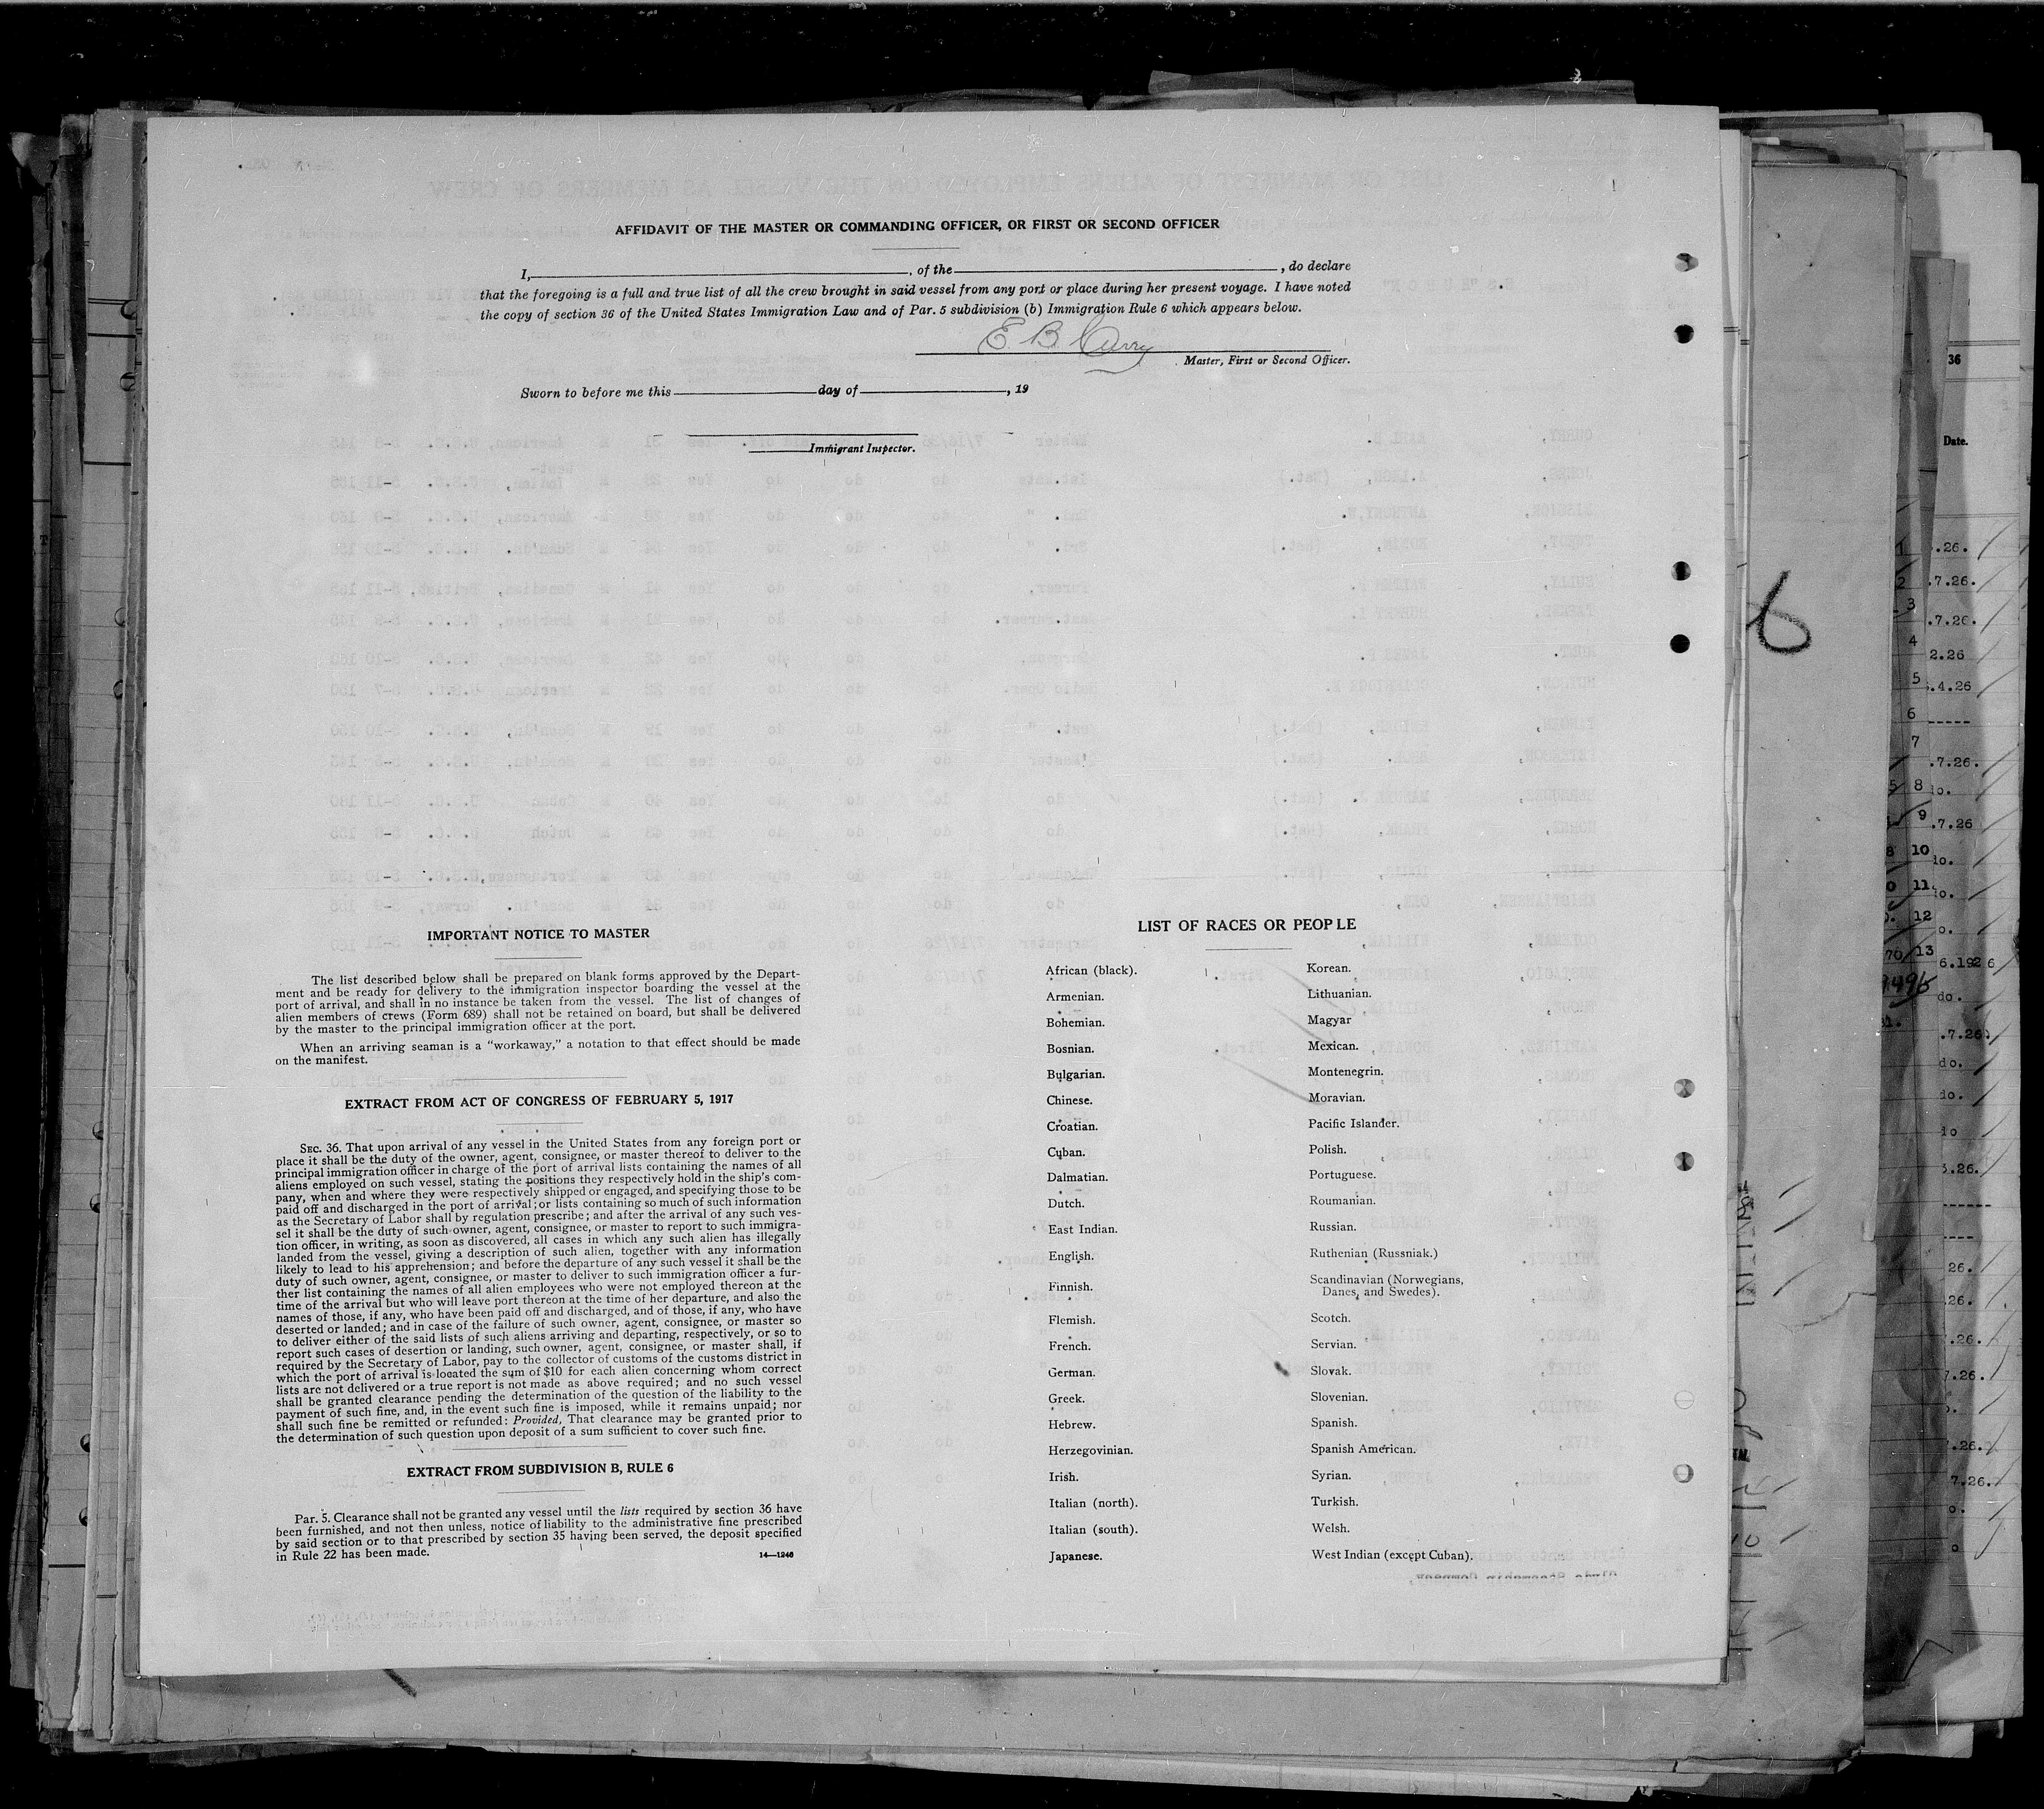 AFFIDAVIT OF THE MASTER OR COMMANDING OFFICER, OR FIRST OR SECOND OFFICER
I, , of the , do declare
that the foregoing is a full and true list of all the crew brought in said vessel from any port or place during her present voyage. I have noted
the copy of section 36 of the United States Immigration Law and of Par. 5 subdivision (b) Immigration Rule 6 which appears below.
E. B. Curry
Master, First or Second Officer.
Sworn to before me this day of , 19
Immigrant Inspector.
IMPORTANT NOTICE TO MASTER
The list described below shall be prepared on blank forms approved by the Depart-
ment and be ready for delivery to the immigration inspector boarding the vessel at the
port of arrival, and shall in no instance be taken from the vessel. The list of changes of
alien members of crews (Form 689) shall not be retained on board, but shall be delivered
by the master to the principal immigration officer at the port.
When an arriving seaman is a "workaway," a notation to that effect should be made
on the manifest.
EXTRACT FROM ACT OF CONGRESS OF FEBRUARY 5, 1917
SEC. 36. That upon arrival of any vessel in the United States from any foreign port or
place it shall be the duty of the owner, agent, consignee, or master thereof to deliver to the
principal immigration officer in charge of the port of arrival lists containing the names of all
aliens employed on such vessel, stating the positions they respectively hold in the ship's com-
pany, when and where they were respectively shipped or engaged, and specifying those to be
paid off and discharged in the port of arrival; or lists containing so much of such information
as the Secretary of Labor shall by regulation prescribe; and after the arrival of any such ves-
sel it shall be the duty of such owner, agent, consignee, or master to report to such immigra-
tion officer, in writing, as soon as discovered, all cases in which any such alien has illegally
landed from the vessel, giving a description of such alien, together with any information
likely to lead to his apprehension; and before the departure of any such vessel it shall be the
duty of such owner, agent, consignee, or master to deliver to such immigration officer a fur-
ther list containing the names of all alien employees who were not employed thereon at the
time of the arrival but who will leave port thereon at the time of her departure, and also the
names of those, if any, who have been paid off and discharged, and of those, if any, who have
deserted or landed; and in case of the failure of such owner, agent, consignee, or master so
to deliver either of the said lists of such aliens arriving and departing, respectively, or so to
report such cases of desertion or landing, such owner, agent, consignee, or master shall, if
required by the Secretary of Labor, pay to the collector of customs of the customs district in
which the port of arrival is located the sum of $10 for each alien concerning whom correct
lists are not delivered or a true report is not made as above required; and no such vessel
shall be granted clearance pending the determination of the question of the liability to the
payment of such fine, and, in the event such fine is imposed, while it remains unpaid; nor
shall such fine be remitted or refunded: Provided, That clearance may be granted prior to
the determination of such question upon deposit of a sum sufficient to cover such fine.
EXTRACT FROM SUBDIVISION B, RULE 6
Par. 5. Clearance shall not be granted any vessel until the lists required by section 36 have
been furnished, and not then unless, notice of liability to the administrative fine prescribed
by said section or to that prescribed by section 35 having been served, the deposit specified
in Rule 22 has been made.
14—1246
LIST OF RACES OR PEOPLE
African (black).
Armenian.
Bohemian.
Bosnian.
Bulgarian.
Chinese.
Croatian.
Cuban.
Dalmatian.
Dutch.
East Indian.
English.
Finnish.
Flemish.
French.
German.
Greek.
Hebrew.
Herzegovinian.
Irish.
Italian (north).
Italian (south).
Japanese.
Korean.
Lithuanian.
Magyar
Mexican.
Montenegrin.
Moravian.
Pacific Islander.
Polish.
Portuguese.
Roumanian.
Russian.
Ruthenian (Russniak.)
Scandinavian (Norwegians,
Danes, and Swedes).
Scotch.
Servian.
Slovak.
Slovenian.
Spanish.
Spanish American.
Syrian.
Turkish.
Welsh.
West Indian (except Cuban).
6
36
Date.